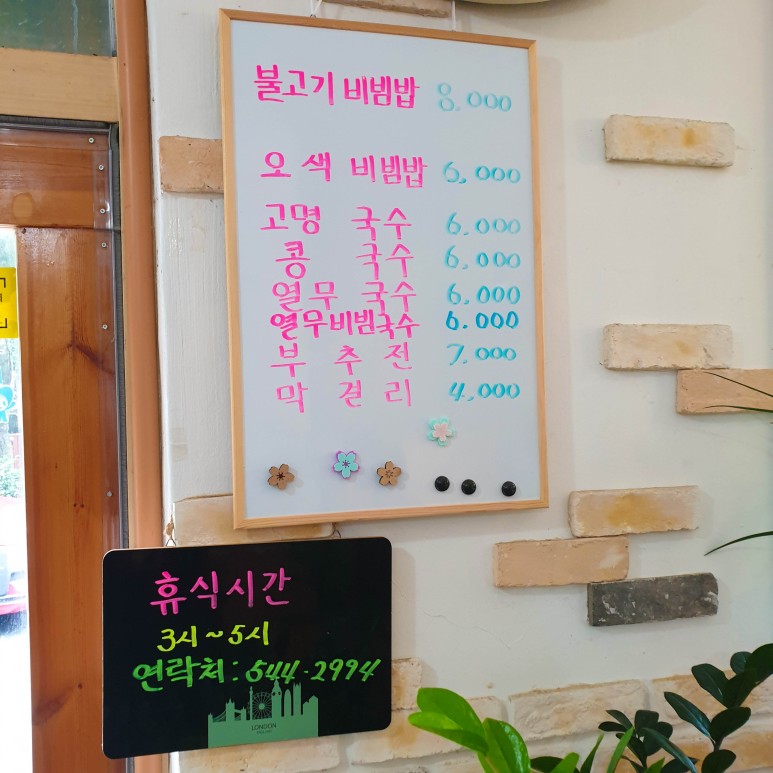 불고기 비빔밥 8,000
오색 비빔밥 6,000
고명 국수 6,000
콩 국수 6,000
열무 국수 6,000
열무비빔국수 6.000
부추전 7,000
막걸리 4,000
휴식시간
3시~5시
연락처: 544-2994
LONDON